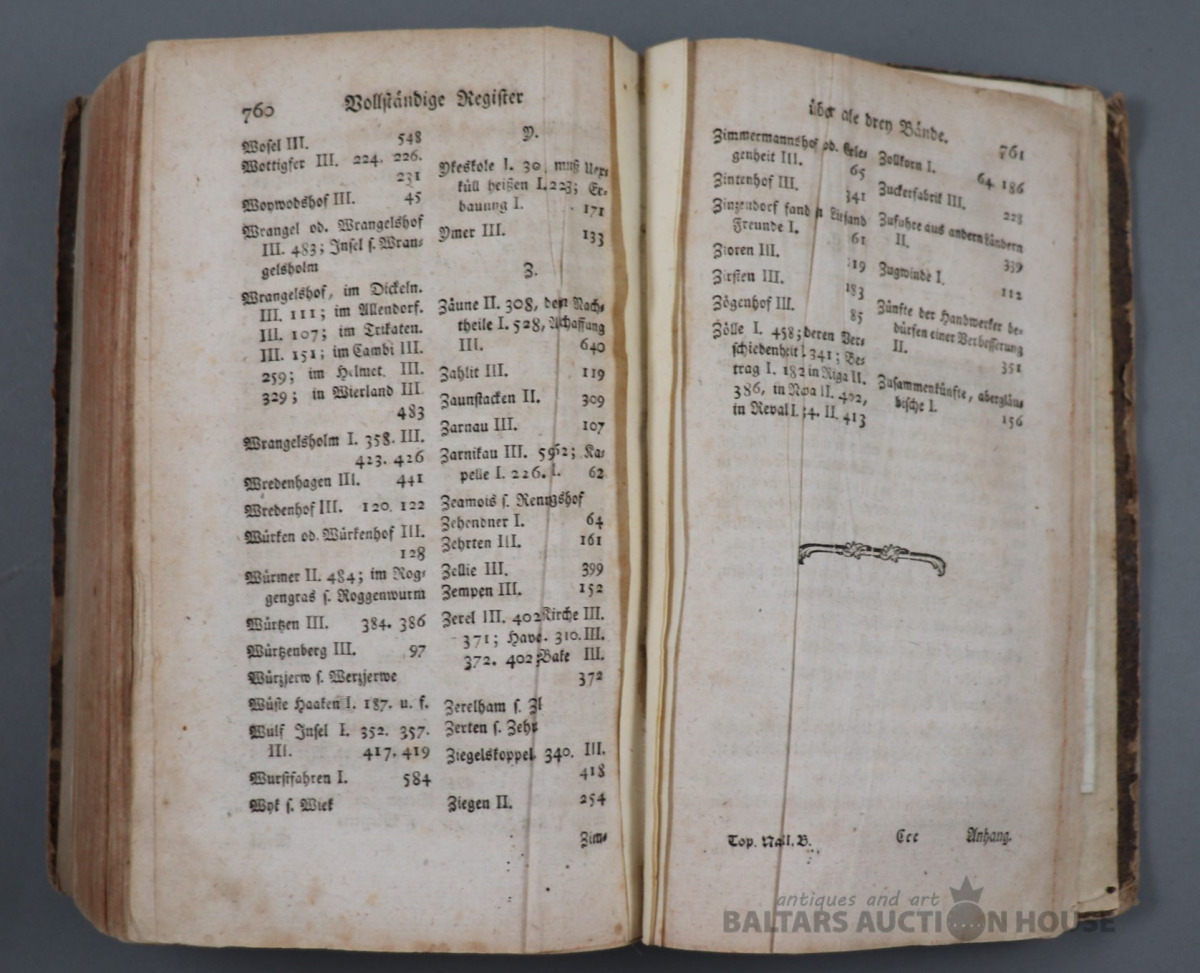 760 Vollständige Register
Wosel III. 548
Wottigfer III. 224. 226.
231
Woywodshof III. 45
Wrangel od. Wrangelshof
III. 483; Insel s. Wran-
gelsholm
Wrangelshof, im Dickeln.
III. 111; im Allendorf.
III. 107; im Trikaten.
III. 151; im Cambi III.
259; im Helmet. III.
329; in Wierland III.
483
Wrangelsholm I. 358. III.
423. 426
Wredenhagen III. 441
Wredenhof III. 120. 122
Würken od. Würkenhof III.
128
Würmer II. 484; im Rog-
gengras s. Roggenwurm
Würtzen III. 384. 386
Würtzenberg III. 97
Würzjerw s. Werzjerwe
Wüste Haaken I. 187. u. f.
Wulf Insel I. 352. 357.
III. 417. 419
Wurstfahren I. 584
Wyk s. Wiek
Y.
Ykeskole I. 30 muß Uex-
küll heißen I. 223; Er-
bauung I. 171
Ymer III. 133
Z.
Zäune II. 308, dem Nach-
theile I. 528,
III. 640
Zahlit III. 119
Zaunstacken II. 309
Zarnau III. 107
Zarnikau III. Ka-
pelle I. 226. 62
Zeamois s.
Zehendner I. 64
Zehrten III. 161
Zellie III. 399
Zempen III. 152
Zerel III. 402 Kirche III.
371; 310. III.
372. 402; Bake III.
372
Zerelham s.
Zerten s. Zehr
Ziegelskoppel 340. III.
418
Ziegen II. 254
Zim-
über drey Bände. 761
Zimmermannshof od.
genheit III. 65
Zintenhof III. 341
Zinzendorf fand
Freunde I. 61
Zioren III. 119
Zirsten III. 183
Zögenhof III. 85
Zölle I. 458; deren Ver-
schiedenheit 341; Be-
trag I. 182 in Riga II.
386, in II. 402,
in Reval I. II. 413
Zollkorn I.
64. 186
Zuckerfabrik III.
228
Zufuhre aus andern Ländern
II.
339
Zugwinde I.
112
Zünfte der Handwerker be-
dürfen einer Verbesserung
II.
351
Zusammenkünfte, abergläu-
bische I.
156
Top. B. Ccc Anhang.
antiques and art
BALTARS AUCTION HOUSE